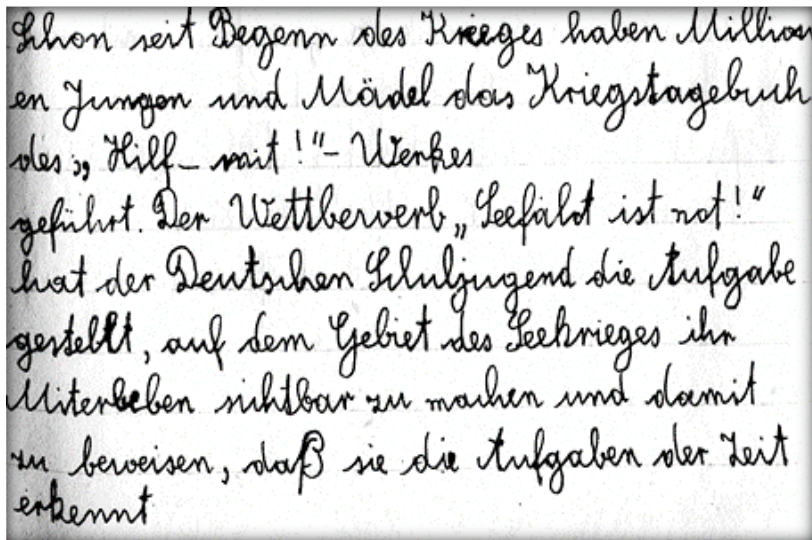 Schon seit Begenn des Krieges haben Million
en Jungen und Mädel das Kriegstagebuch
des „Hilf-mit!"-Werkes
geführt. Der Wettberverb „Seefaldt ist not!"
hat der Deutschen Schuljugend die Aufgabe
gestellt, auf dem Gebiet des Seekrieges ihr
Miterleben sichtbar zu machen und damit
zu beweisen, daß sie die Aufgaben der Zeit
erkennt